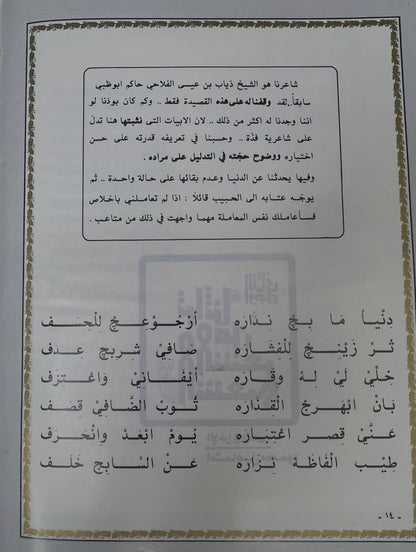 شاعرنا هو الشيخ ذياب بن عيسى الفلاحي حاكم ابوظبي
سابقاً. لقد وقفنا له على هذه القصيدة فقط .. وكم كان بودنا لو
اننا وجدنا له اكثر من ذلك .. لان الابيات التى نثبتها هنا تدلّ
على شاعرية فذّة .. وحسبنا في تعريفه قدرته على حسن
اختياره ووضوح حجّته في التدليل على مراده .
وفيها يحدثنا عن الدنيا وعدم بقائها على حالة واحدة .. ثم
يوجّه عتابه الى الحبيب قائلاً : اذا لم تعاملني باخلاص
فسأعاملك نفس المعاملة مهما واجهت في ذلك من متاعب .
دِنْيا مَا بِجْ نِدَارَه أرْجُوعِجْ لِلْجَفَ
ثَرْ زَيْنِجْ لِلْفَشَارَه صَافِيْ شَرِبِجْ عِدَف
خِلِّيْ لَيْ لِهْ وِقَارَه أَيْفَانِيْ وَاعْتِزَف
بَانْ ابْهَرِجْ الْقِذَارَه ثُوبْ الضَّافِيْ قِصَف
عَنِّيْ قِصَر اعْتِبَارَه يُومْ ابْعَدْ وانْحَرَف
طِيْب الْفَاظَهْ نِزَارَه عَنْ السَّابِجْ خَلَف
- ١٤ -